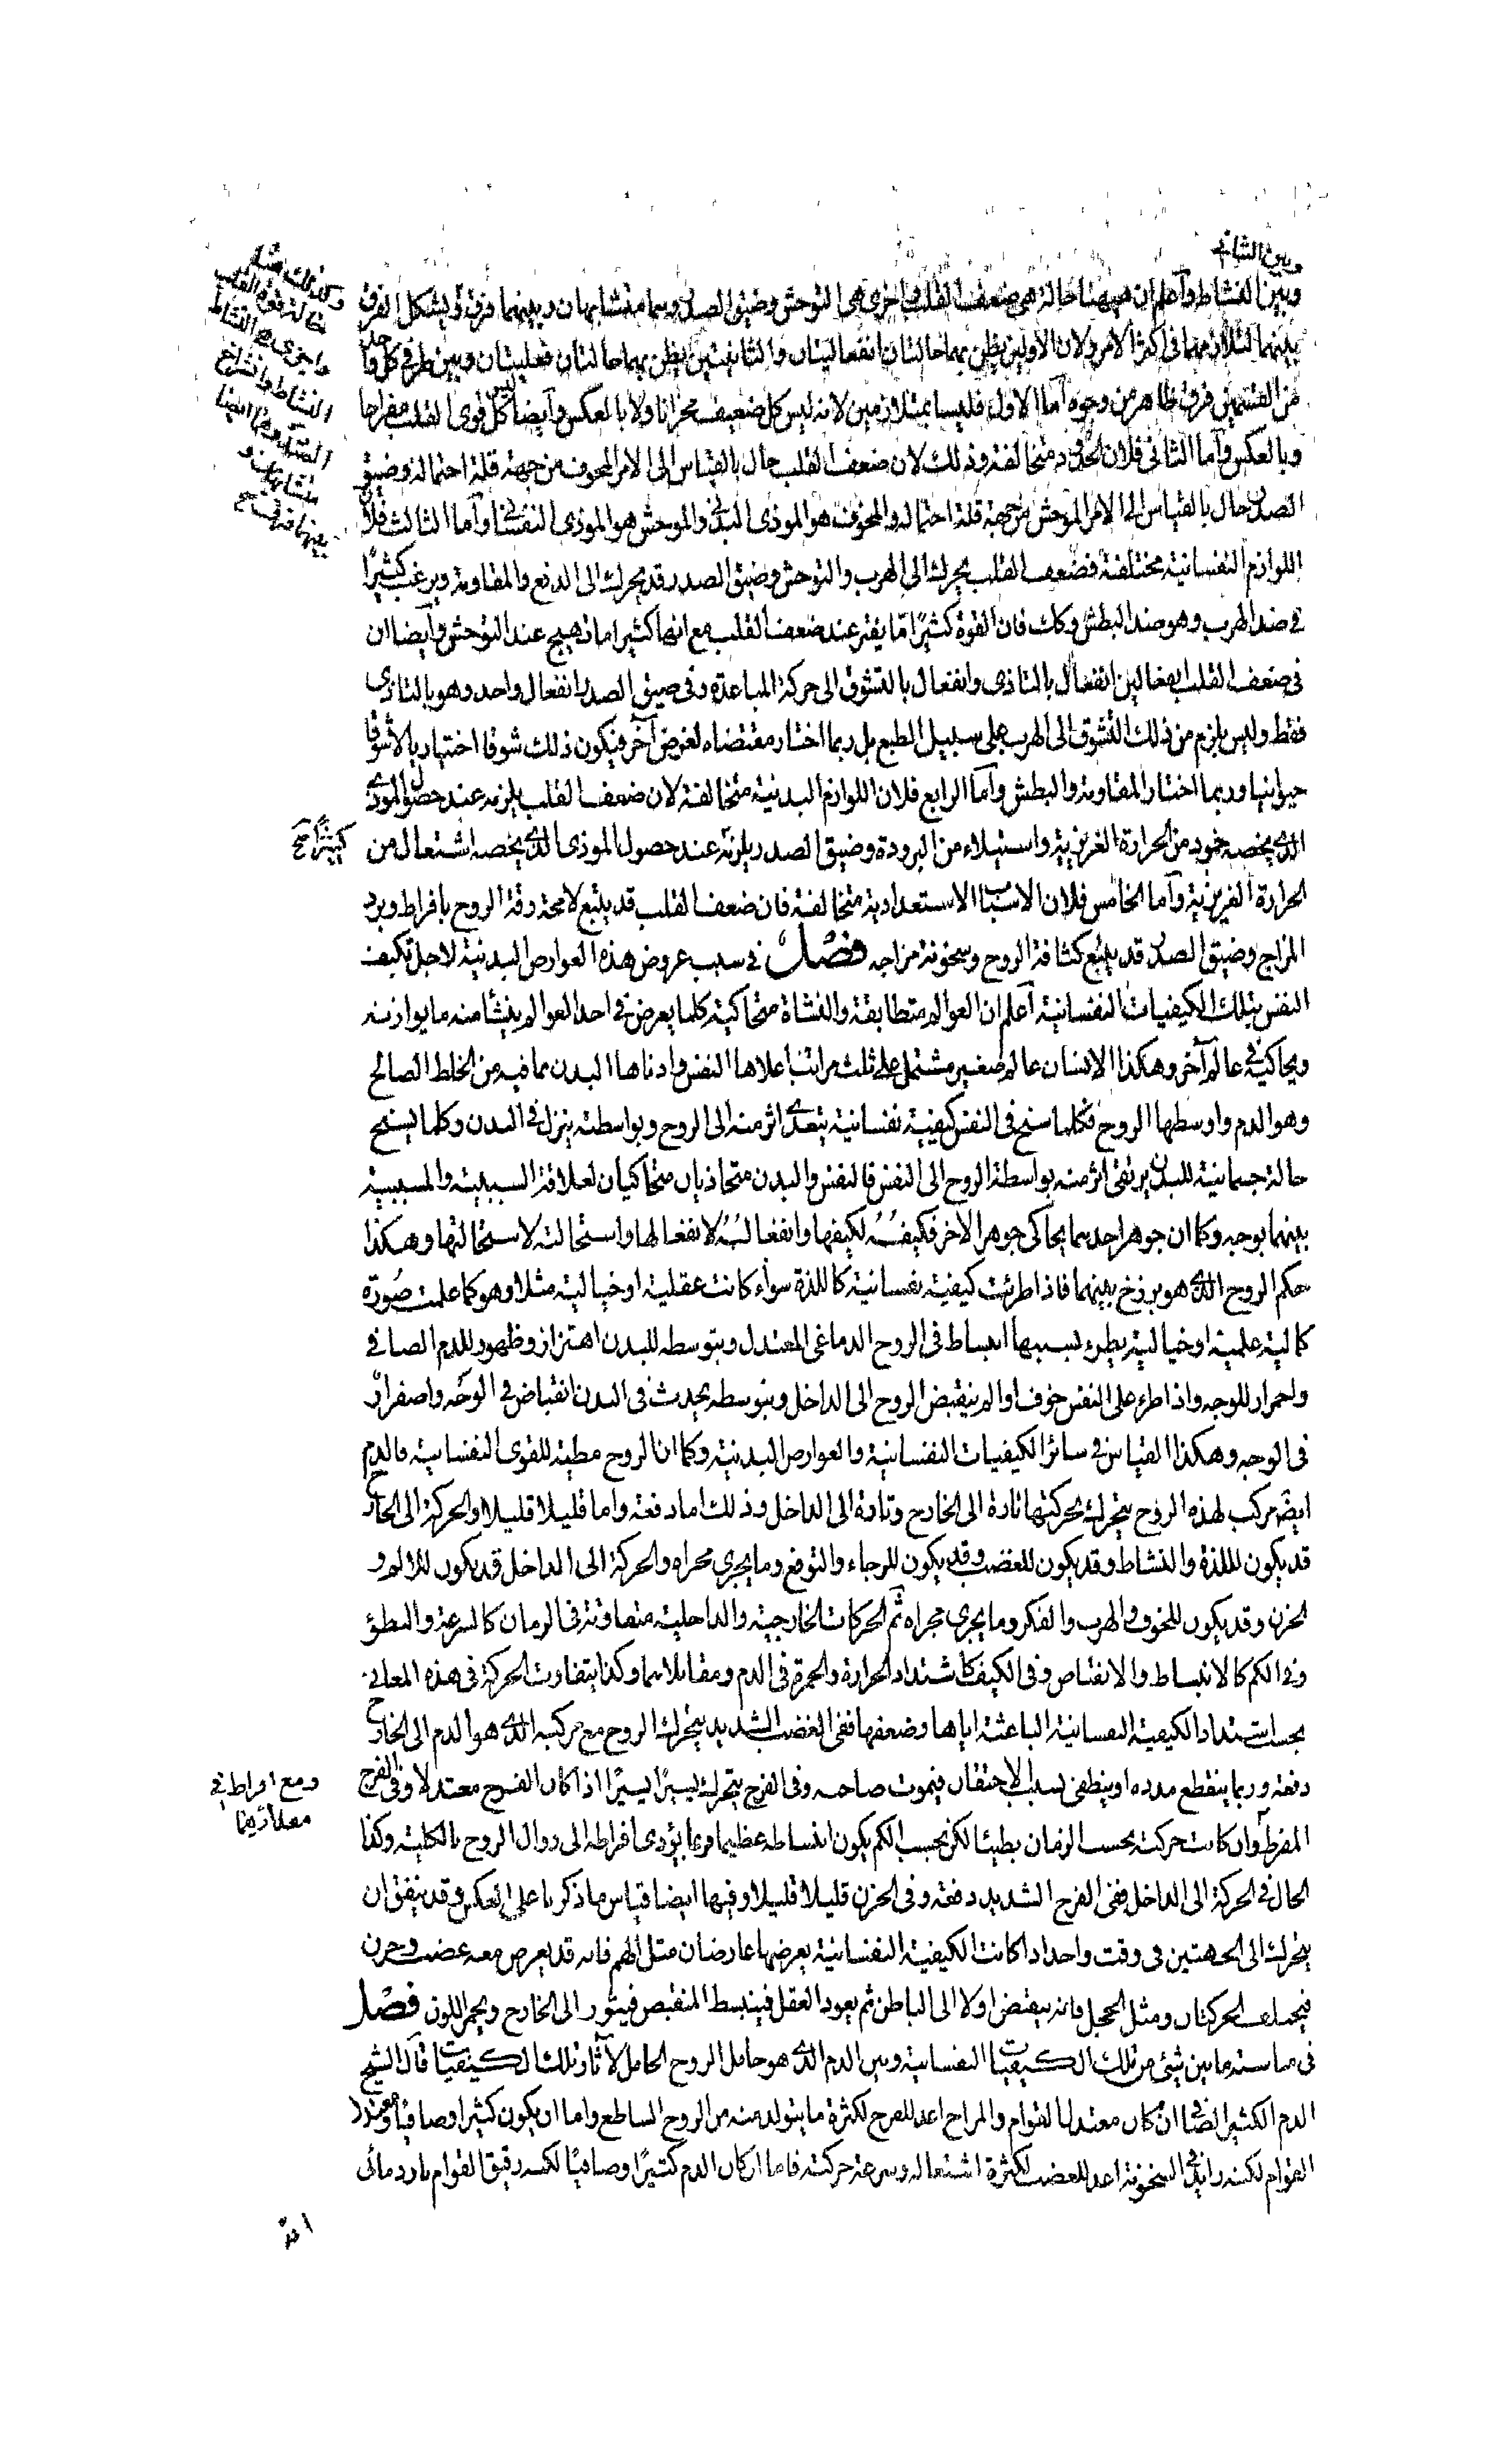 وبين الثانية
وبين النشاط وآعلم ان ههنا حالة هى ضعف القلب واخرى هى التوحش وضيق الصدر وهما متشابهان وبينهما فرق ويشكل الفرق
بينهما لتلازمهما فى اكثر الامر ولان الاولين يظن بهما حالتان انفعاليتان والثانيتين يظن بهما حالتان فعليتان وبين طرفى كل واحد
من القسمين فرق ظاهر من وجوه آما الاول فليسا بمتلازمين لانه ليس كل ضعيف محزانا ولا بالعكس وآيضا ليس كل قوى القلب مفراحا
وبالعكس وآما الثانى فلان الحدود متخالفة وذلك لان ضعف القلب حال بالقياس الى الامر المخوف من جهة قلة احتماله وضيق
الصدر حال بالقياس الى الامر الموحش من جهة قلة احتماله والمخوف هو الموذى البدنى والموحش هو الموذى النفسانى وآما الثالث فلان
اللوازم النفسانية مختلفة فضعف القلب يحرك الى الهرب والتوحش وضيق الصدر قد يحرك الى الدفع والمقاومة ويرغب كثيرًا
فى ضد الهرب وهو ضد البطش وكك فان القوة كثيرًا مّا يفتر عند ضعف القلب مع انها كثيرا ما تهيج عند التوحش وآيضا ان
فى ضعف القلب انفعالين انفعال بالتاذى وانفعال بالتشوق الى حركة المباعدة وفى ضيق الصدر انفعال واحد وهو بالتاذى
فقط وليس يلزم من ذلك التشوق الى الهرب على سبيل الطبع بل ربما اختار مقتضاه لغرض آخر فيكون ذلك شوقا اختياريا لا شوقا
حيوانيا وربما اختار المقاومة والبطش وآما الرابع فلان اللوازم البدنية متخالفة لان ضعف القلب يلزمه عند حصول الموذى
الذى يخصه خمود من الحرارة الغريزية واستيلاء من البرودة وضيق الصدر يلزمه عند حصول الموذى الذى يخصه اشتعال من
الحرارة الغريزية وآما الخامس فلان الاسباب الاستعدادية متخالفة فان ضعف القلب قد يتبع لا محة رقة الروح بافراط وبرد
المزاج وضيق الصدر قد يتبع كثافة الروح وسخونة مزاجه فصل فى سبب عروض هذه العوارض البدنية لاجل تكيف
النفس بتلك الكيفيات النفسانية آعلم ان العوالم متطابقة والنشاة متحاكية كلما يعرض فى احد العوالم ينشأ منه ما يوازنه
ويحاكيه فى عالم آخر وهكذا الانسان عالم صغير مشتمل على ثلث مراتب اعلاها النفس وادناها البدن بما فيه من الخلط الصالح
وهو الدم واوسطها الروح فكلما سنح فى النفس كيفية نفسانية يتعدى اثر منه الى الروح وبواسطته ينزل فى البدن وكلما يسنح
حالة جسمانية للبدن يرتقى اثر منه بواسطة الروح الى النفس فالنفس والبدن متحاذيان متحاكيان لعلاقة السببية والمسببية
بينهما بوجه وكما ان جوهر احدهما يحاكى جوهر الاخر فكيفيته لكيفها وانفعالته لانفعالها واستحالته لاستحالتها وهكذا
حكم الروح الذى هو برزخ بينهما فاذا طرئت كيفية نفسانية كاللذة سواء كانت عقلية او خيالية مثلا وهو كما علمت صُورة
كمالية علمية او خيالية يطرء بسببها انبساط فى الروح الدماغى المعتدل وبتوسطه للبدن اهتزاز وظهور للدم الصافى
واحمرار للوجه واذا طرء على النفس خوف او الم ينقبض الروح الى الداخل وبتوسطه يحدث فى البدن انقباض فى الوجه واصفرار
فى الوجه وهكذا القياس فى سائر الكيفيات النفسانية والعوارض البدنية وكما ان الروح مطية للقوى النفسانية فالدم
ايضًا مركب لهذه الروح يتحرك بحركتها تارة الى الخارج وتارة الى الداخل وذلك اما دفعة واما قليلا قليلا والحركة الى الخارج
قد يكون للذة والنشاط وقد يكون للغضب وقد يكون للرجاء والتوقع وما يجرى مجراه والحركة الى الداخل قد يكون للالم و
الحزن وقد يكون للخوف والهرب والفكر وما يجرى مجراه ثم الحركات الخارجية والداخلية متفاوتة فى الزمان كالسرعة والبطؤ
وفى الكم كالانبساط والانقباض وفى الكيف كاشتداد الحرارة والحمرة فى الدم ومقابلاتهما وكذا يتفاوت الحركة فى هذه المعانى
بحسب اشتداد الكيفية النفسانية الباعثة اياها وضعفها ففى الغضب الشديد يتحرك الروح مع مركبه الذى هو الدم الى الخارج
دفعة وربما ينقطع مدده او ينطفى بسبب الاحتقان فيموت صاحبه وفى الفرح يتحرك يسيرًا يسيرًا اذا كان الفرح معتدلا وفى الفرح
المفرط وآن كانت حركته بحسب الزمان بطيئا لكن بحسب الكم يكون انبساطه عظيما فربما يؤدى افراطه الى زوال الروح بالكلية وكذا
الحال فى الحركة الى الداخل ففى الفزع الشديد دفعة وفى الحزن قليلا قليلا وفيها ايضا قياس ما ذكرنا على العكس وقد يتفق ان
يتحرك الى الجهتين فى وقت واحد اذا كانت الكيفية النفسانية يعرضها عارضان مثل الهم فانه قد يعرض معه غضب وحزن
فيختلف الحركتان ومثل الخجل فانه ينقبض اولا الى الباطن ثم يعود العقل فينبسط المنقبض فيثور الى الخارج ويحمر اللون فصل
فى مناسبة ما بين شئ من تلك الكيفيات النفسانية وبين الدم الذى هو حامل الروح الحامل لآثار تلك الكيفيات قال الشيخ
الدم الكثير الصافى ان كان معتدل القوام والمزاج اعد للفرح لكثرة ما يتولد منه من الروح الساطع واما ان يكون كثيرا وصافيا ومعتدل
القوام لكنه زايد فى السخونة اعد للغضب لكثرة اشتعاله وسرعة حركته فاما ان كان الدم كثيرًا وصافيًا لكنه رقيق القوام بارد مائى
وكذلك هنا
حالة قوة القلب
واخرى هى النشاط
النشاط وانشراح
الصدر وهما ايضا
متشابهان و
بينهما فرق صح
كثيرًا صح
ومع افراط فى
مقداريهما